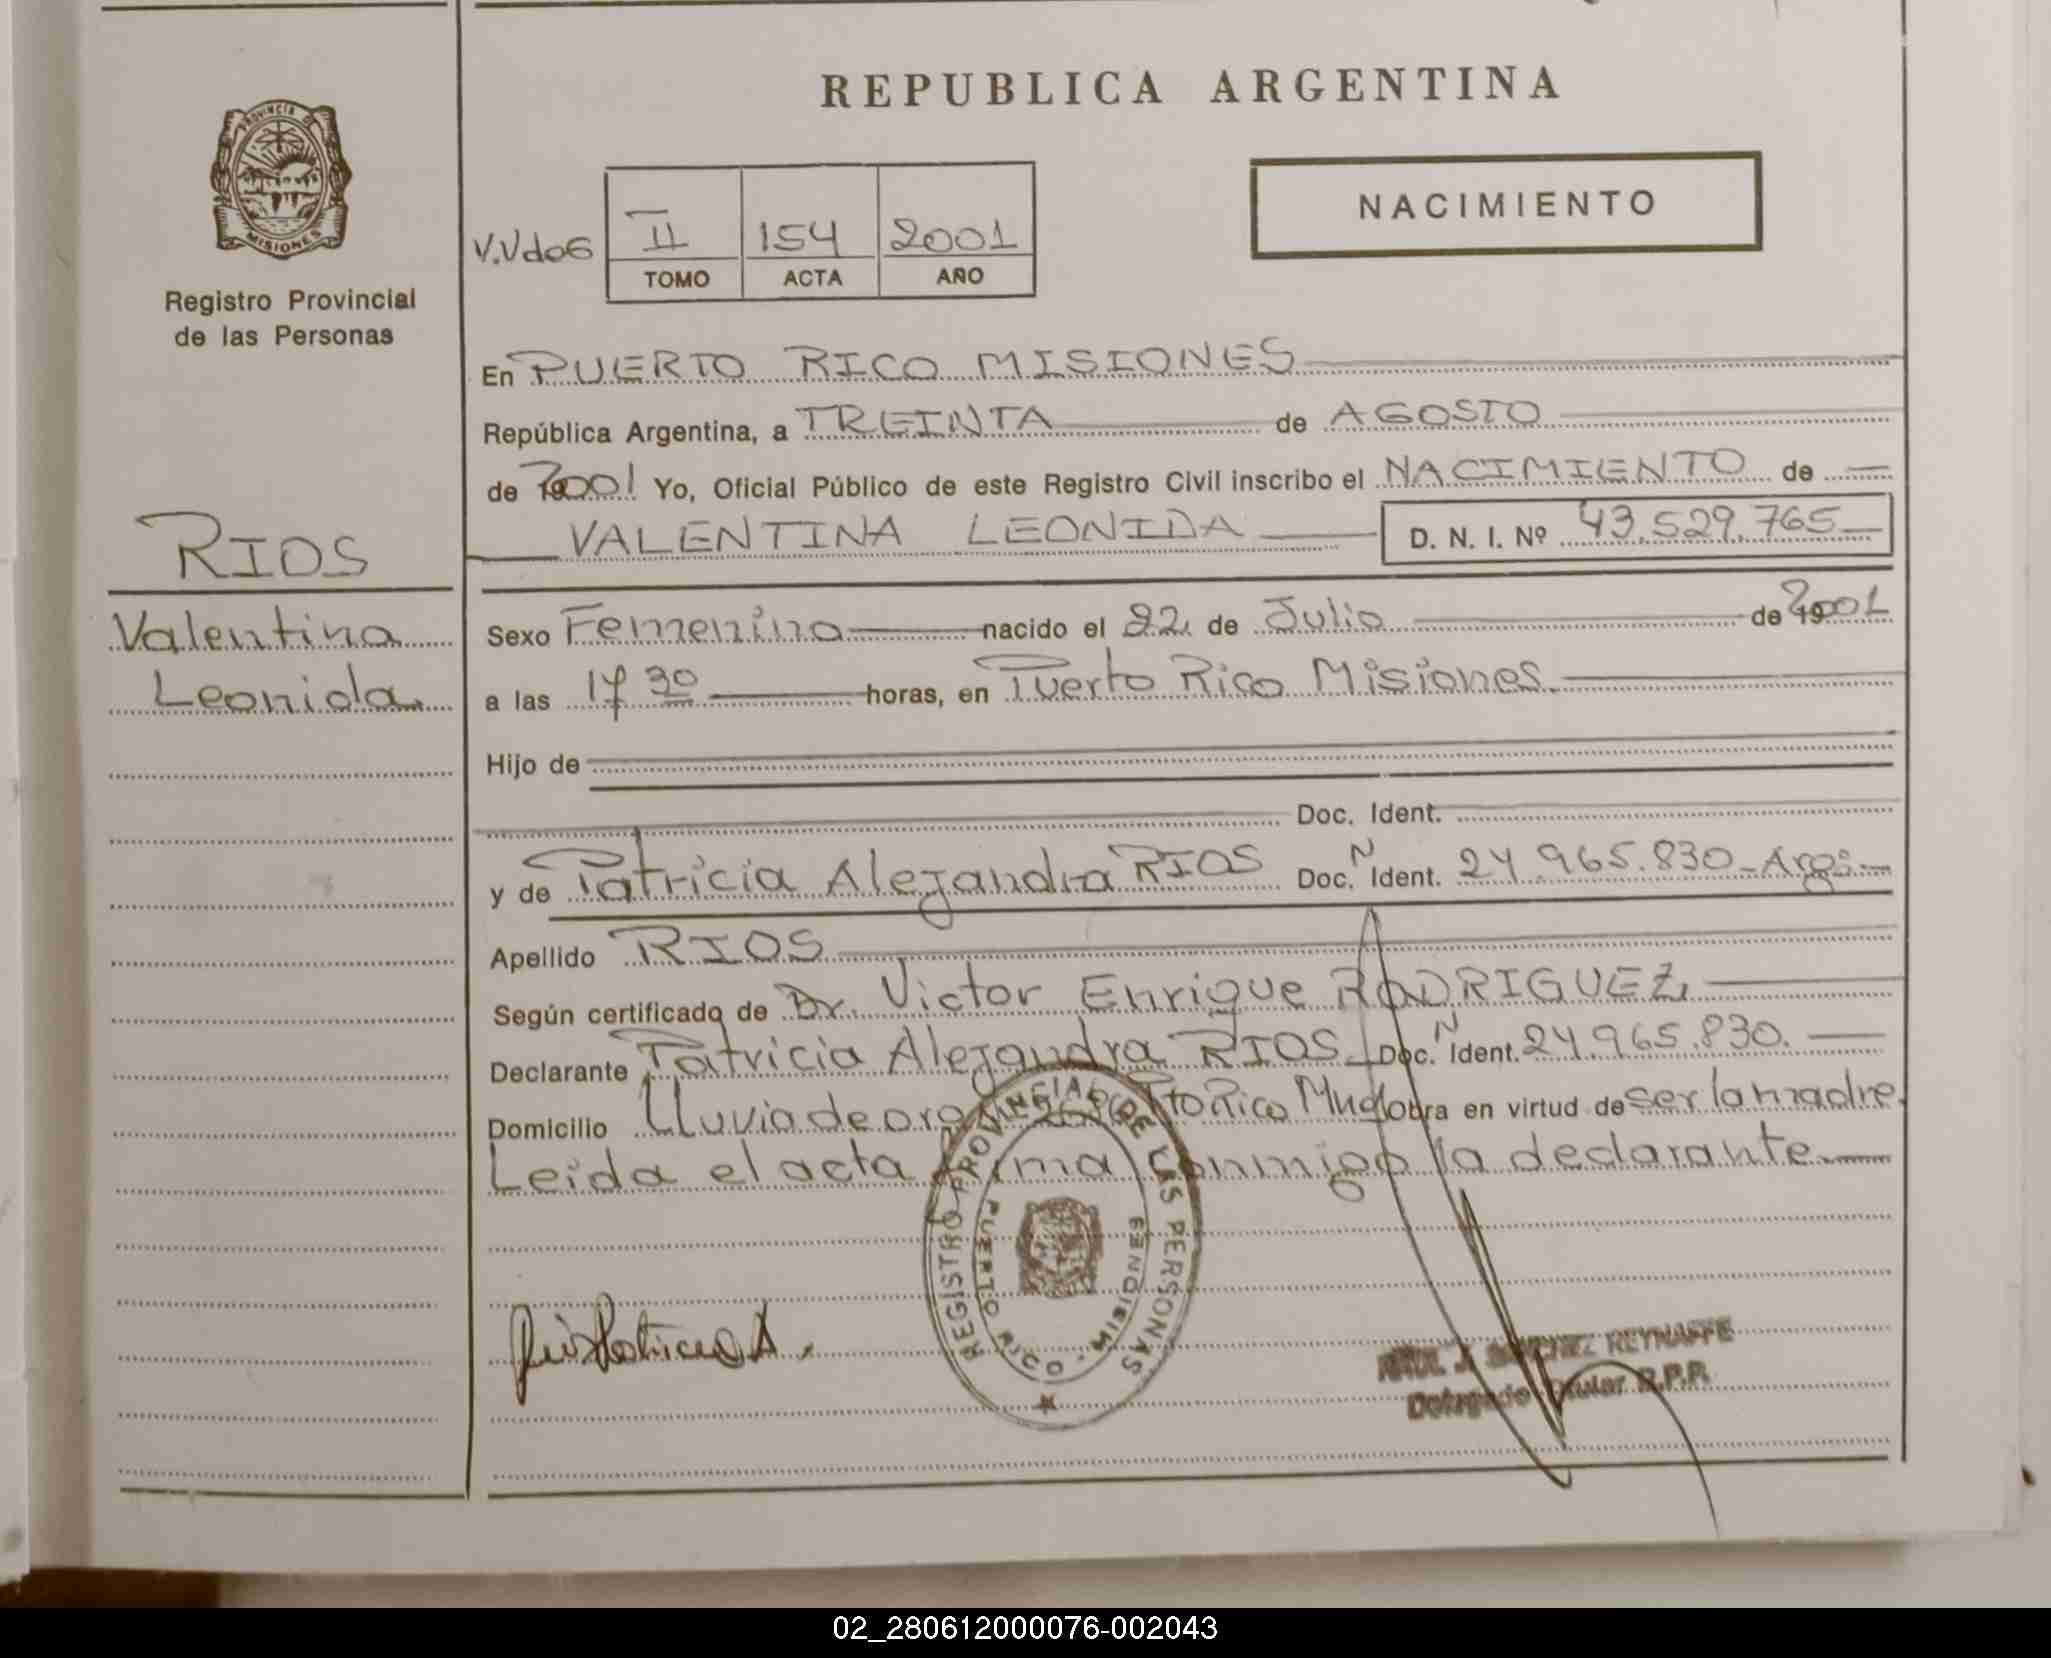 REPUBLICA ARGENTINA
PROVINCIA DE
MISIONES
Registro Provincial
de las Personas
NACIMIENTO
V.Vdos II 154 2001
TOMO ACTA AÑO
En PUERTO RICO MISIONES
República Argentina, a TREINTA de AGOSTO
de 2001 Yo, Oficial Público de este Registro Civil inscribo el NACIMIENTO de
VALENTINA LEONIDA D. N. I. Nº 43.529.765
RIOS
Valentina
Leonida
Sexo Femenino nacido el 22 de Julio de 2001
a las 17 30 horas, en Puerto Rico Misiones.
Hijo de
Doc. Ident.
y de Patricia Alejandra RIOS Doc. Ñ Ident. 24.965.830-Arg:
Apellido RIOS
Según certificado de Dr. Victor Enrique RODRIGUEZ
Declarante Patricia Alejandra RIOS Doc. Ñ Ident. 24.965.830.
Domicilio Lluvia de oro Pto Rico Mnes obra en virtud de ser la madre.
Leida el acta firma conmigo la declarante.
REGISTRO PROVINCIAL DE LAS PERSONAS
PUERTO RICO - MISIONES
Rios Patricia A.
RAUL J. SANCHEZ REYNAFFE
Delegado Titular R.P.P.
02_280612000076-002043